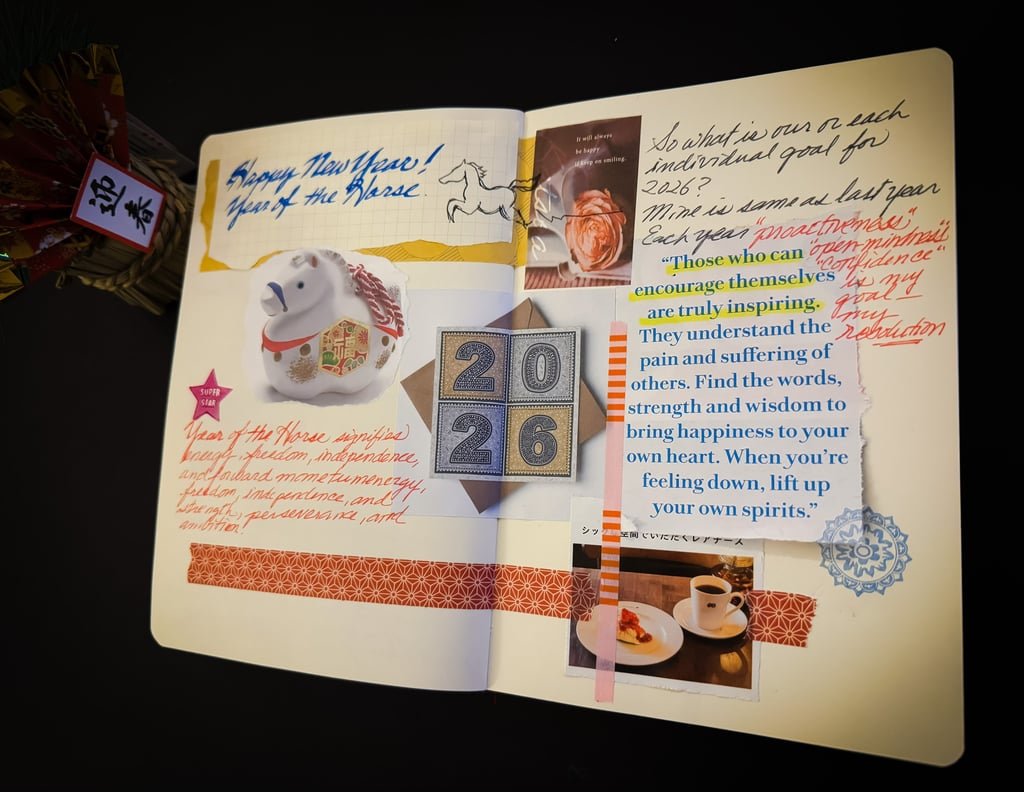 迎春
Happy New Year!
Year of the Horse
SUPER
STAR
Year of the Horse signifies
energy, freedom, independence,
and forward mometumenergy,
freedom, independence, and
strength, perseverance, and
ambition!
20
26
It will always
be happy
if keep on smiling.
So what is our or each
individual goal for
2026?
Mine is same as last year
Each year "proactiveness",
"open-mindnes"
"confidence"
is my
goal
my
resolution
"Those who can
encourage themselves
are truly inspiring.
They understand the
pain and suffering of
others. Find the words,
strength and wisdom to
bring happiness to your
own heart. When you're
feeling down, lift up
your own spirits."
空間でいただくレアチーズ